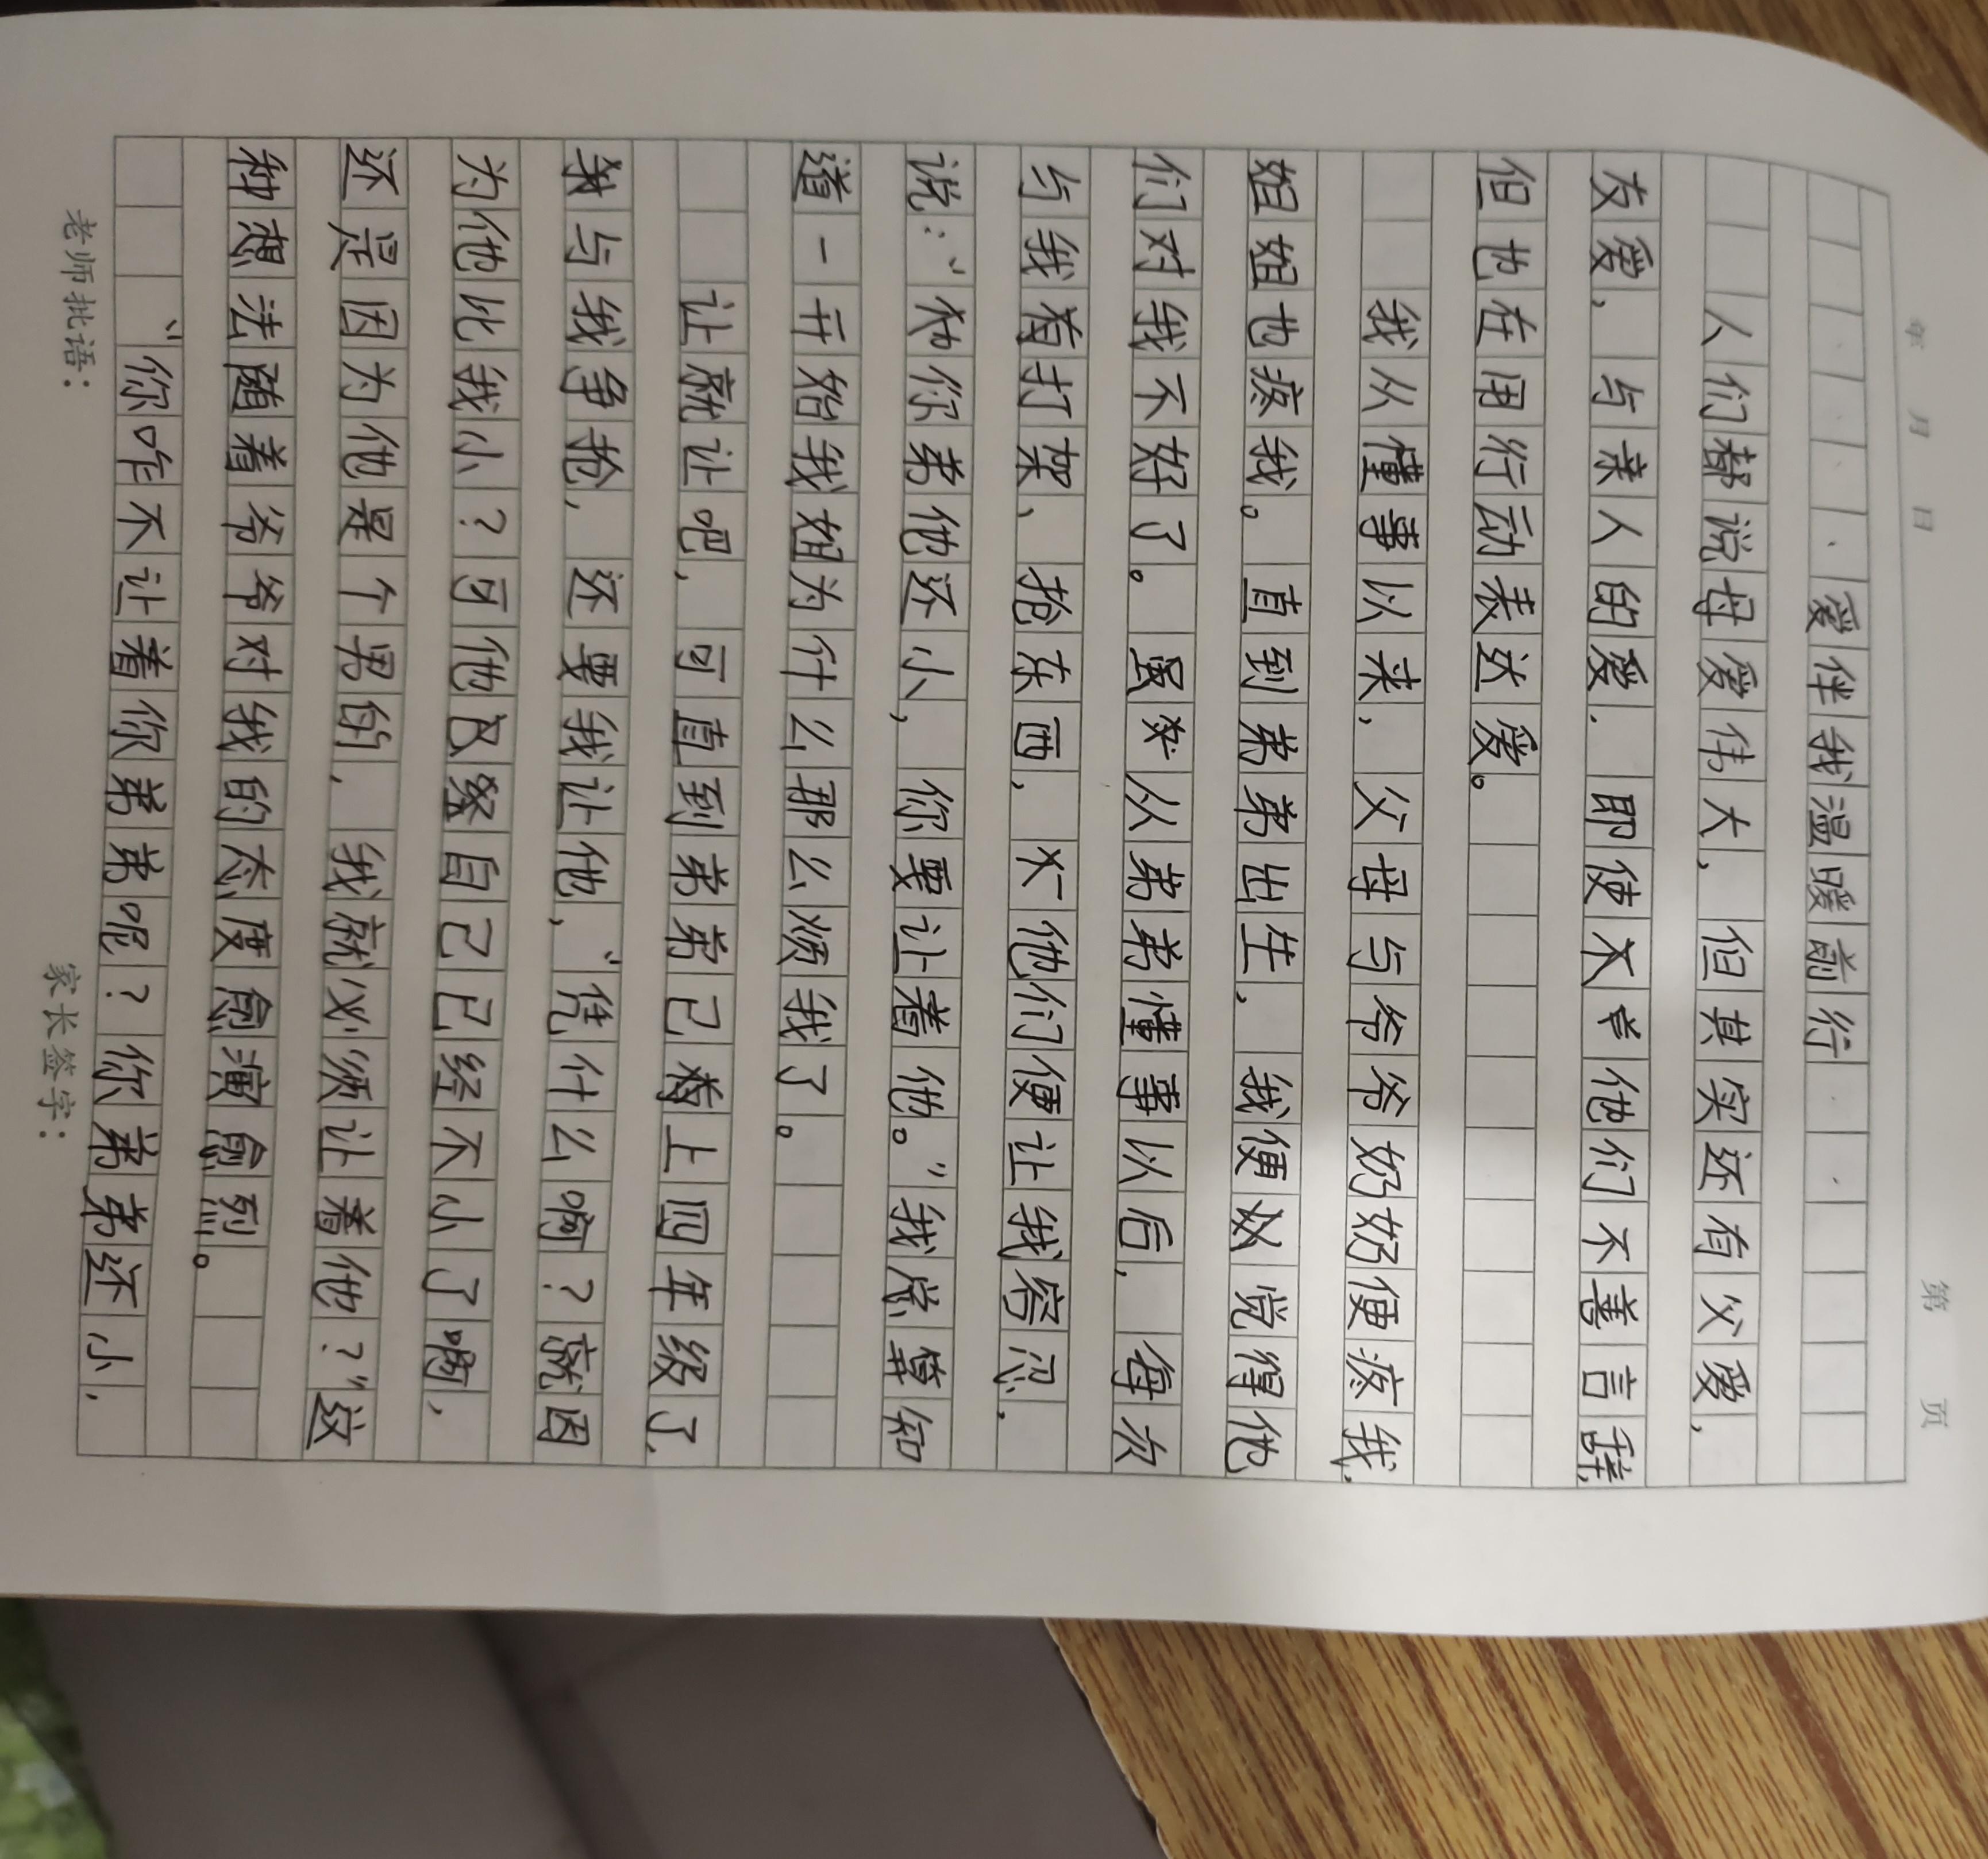 年 月 日 第 页
爱伴我温暖前行
人们都说母爱伟大，但其实还有父爱，
友爱、与亲人的爱.即使他们不善言辞，
但也在用行动表达爱。
我从懂事以来，父母与爷爷奶奶便疼我，
姐姐也疼我。直到弟弟出生，我便觉得他
们对我不好了。虽从弟弟懂事以后，每次
与我有打架、抢东西，他们便让我容忍，
说：“你弟弟他还小，你要让着他。”我总算知
道一开始我姐为什么那么烦我了。
让就让吧，可直到弟弟已上四年级了，
与我争抢，还要我让他，“凭什么啊？就因
为他比我小？可他自己已经不小了啊，
还是因为他是个男的，我就必须让着他？”这
种想法随着爷爷对我的态度愈演愈烈。
“你咋不让着你弟弟呢？你弟弟还小，
老师批语： 家长签字：